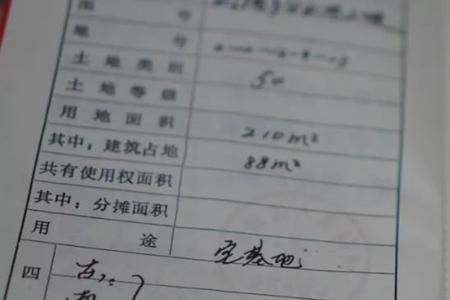 图 号
地 号
土地类别 50
土地等级
用地面积 210m²
其中：建筑占地 88m²
共有使用权面积
其中：分摊面积
用 途 宅基地
四